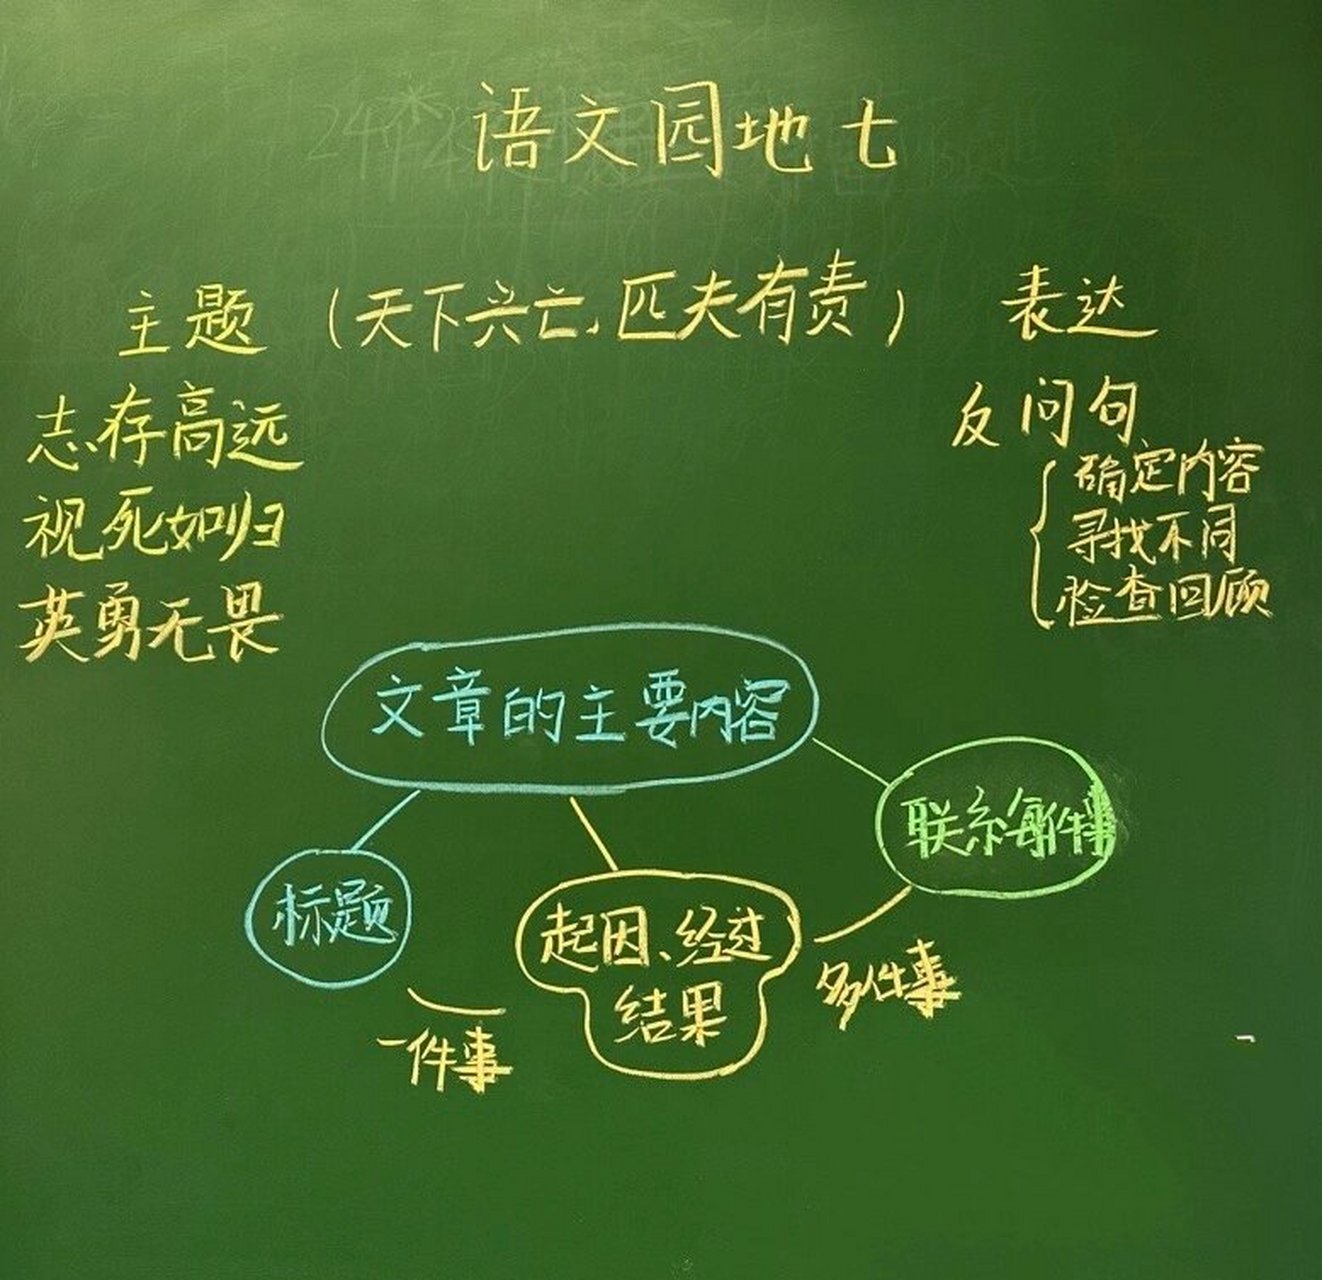 语文园地七
主题 (天下兴亡,匹夫有责) 表达
志存高远
视死如归
英勇无畏
反问句
确定内容
寻找不同
检查回顾
文章的主要内容
标题
起因、经过
结果
联系每件事
一件事
多件事